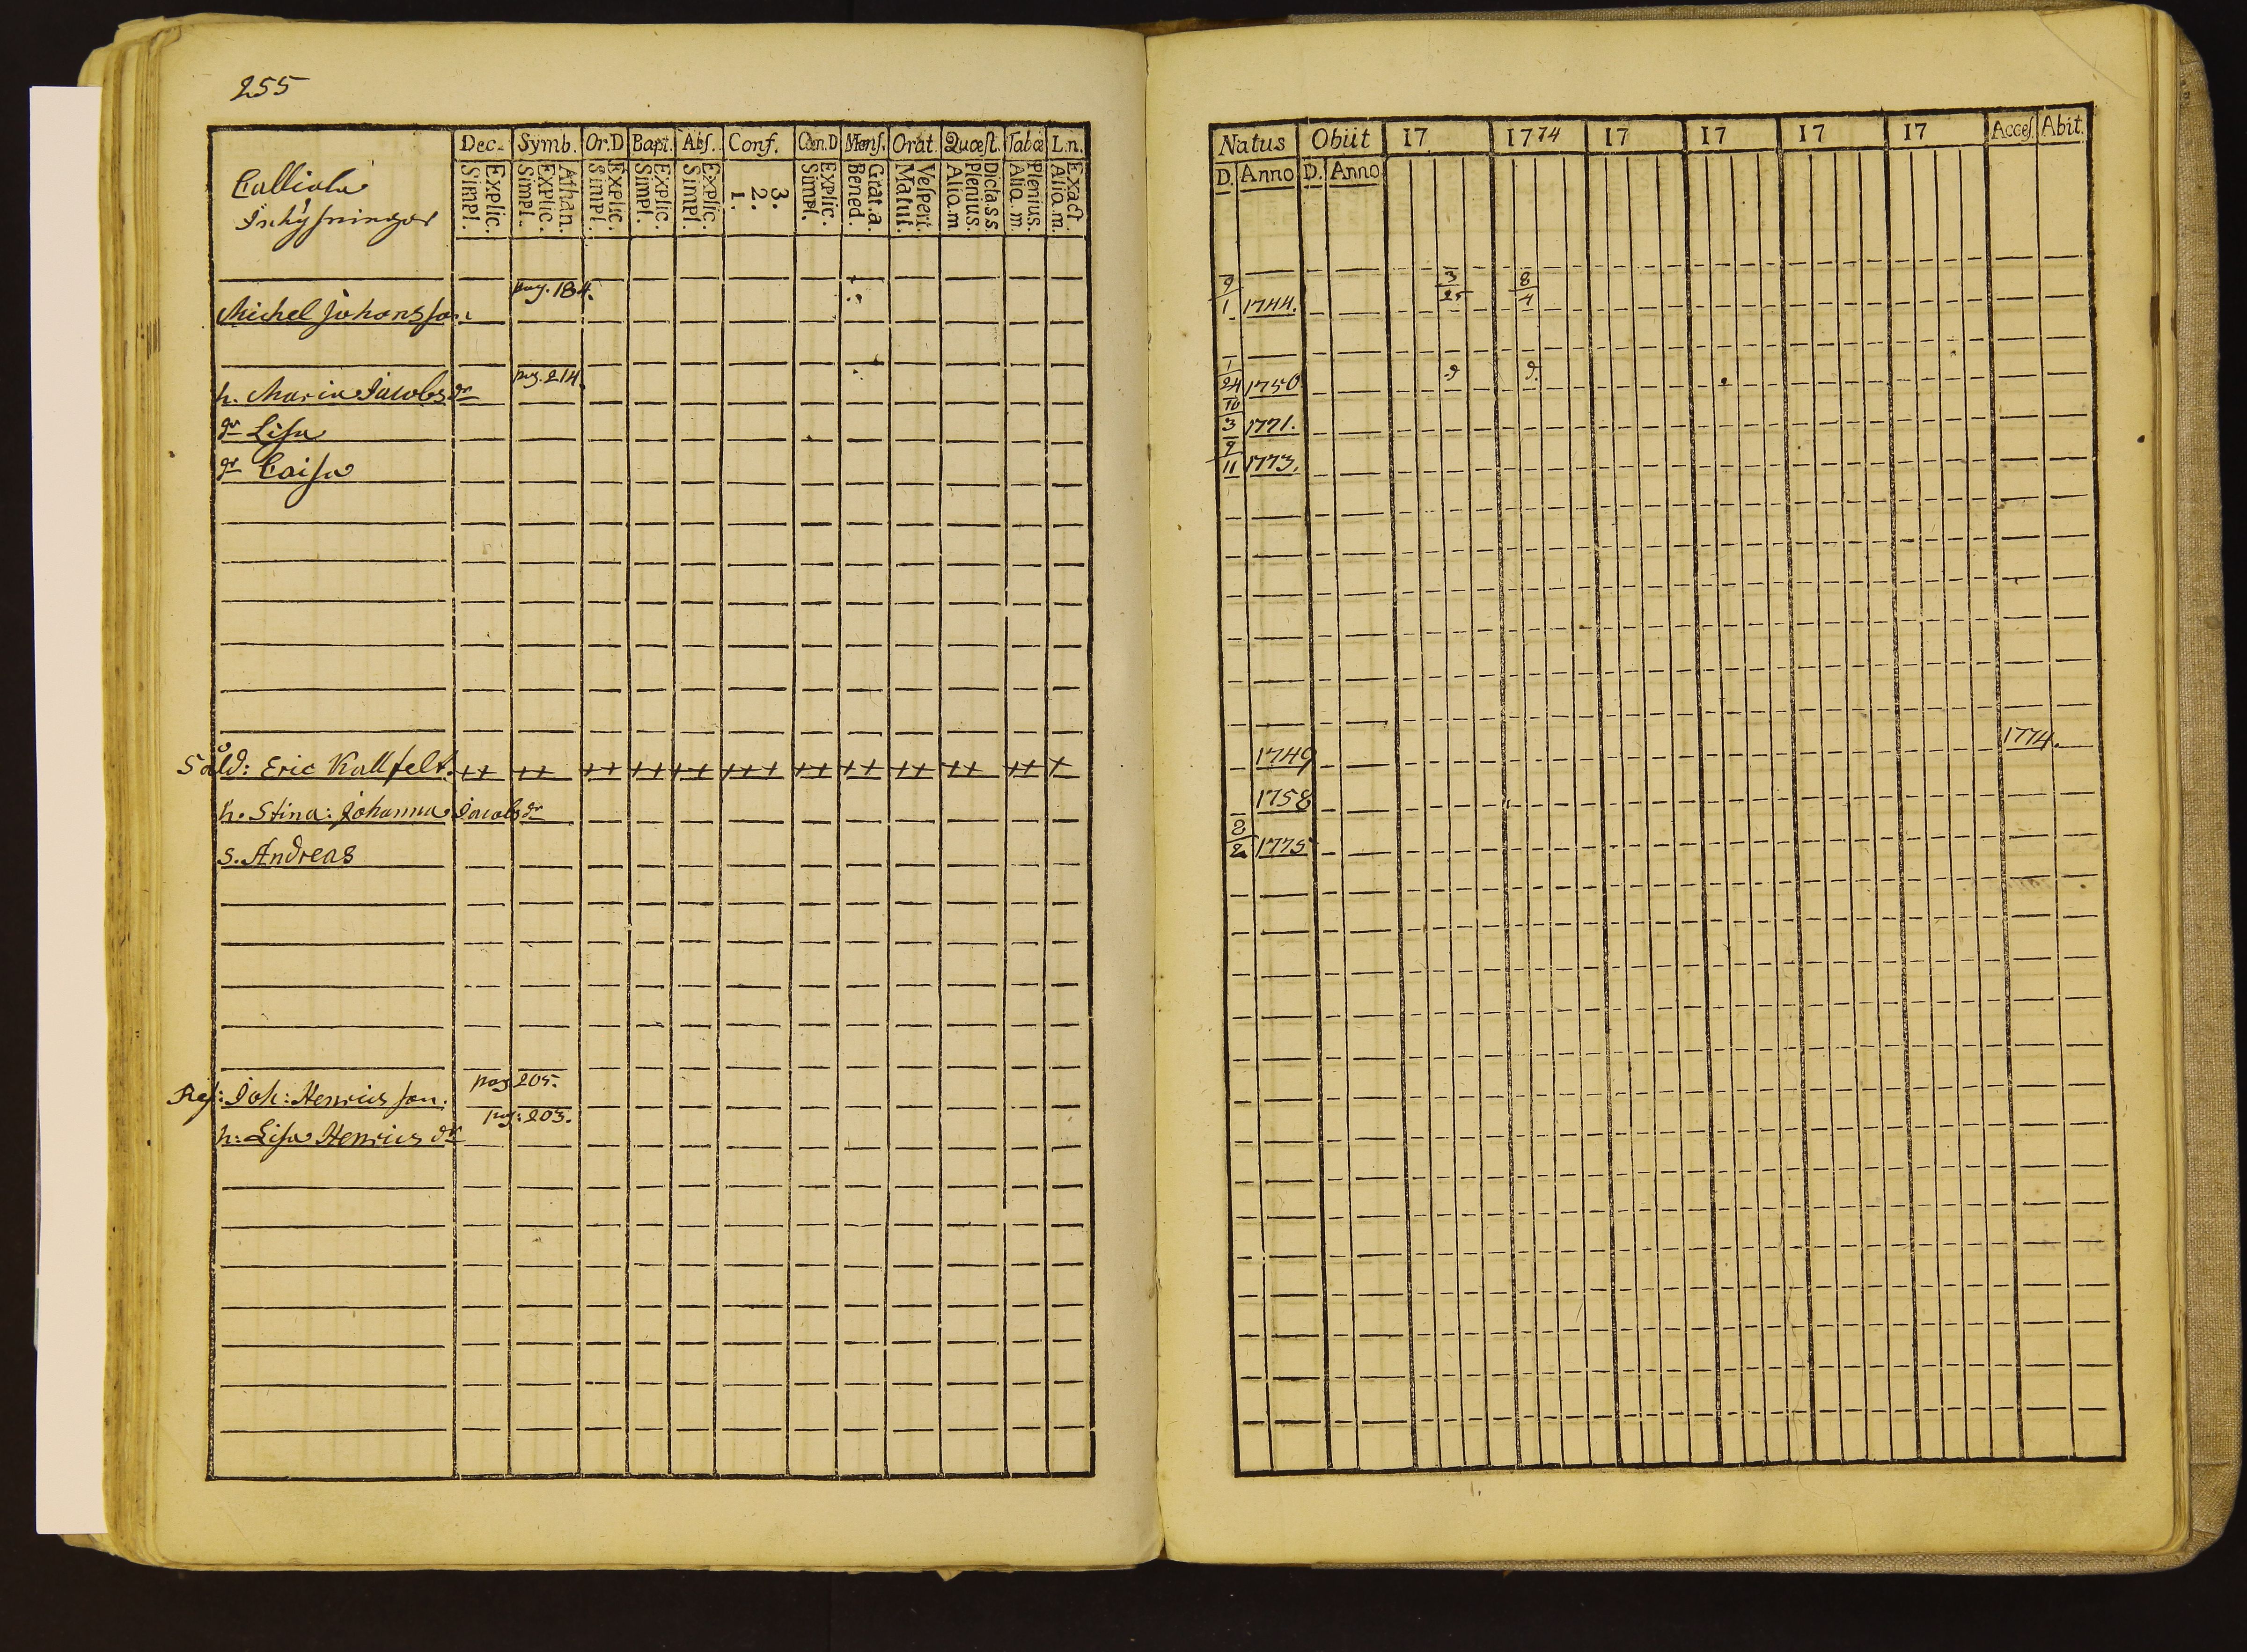 255
Dec. Symb. Or.D Bapt. Abs. Conf. Cœn.D Mens. Orat. Quœst. Tabœ L.n.
Calliala
Inhysningar
Explic. Simpl. Athan. Explic. Simpl. Explic. Simpl. Explic. Simpl. Explic. Simpl. 3. 2. 1. Explic. Simpl. Grat.a. Bened. Vespert. Matut. Dicta.s.s Plenius. Aliq.m Plenius. Aliq.m. Exact. Aliq.m.
pag. 184.
Michel Johansson
pag. 214.
h. Maria Jacobs dr
dr Lisa
dr Caisa
Såld: Eric Kallfelt. ++ ++ ++ ++ ++ +++ ++ ++ ++ ++ ++ +
h. Stina: Johanna Jacobs dr
s. Andreas
pag 205.
Joh: Henricsson.
pag: 203.
h: Lisa Henrics dr
Natus Obiit 17 1774 17 17 17 17 Acces. Abit.
D. Anno D. Anno
9/1 1744. 3/25 8/4
1/24 1750 d d
10/3 1771.
9/11 1773.
1749 1774.
1758
2/2 1775